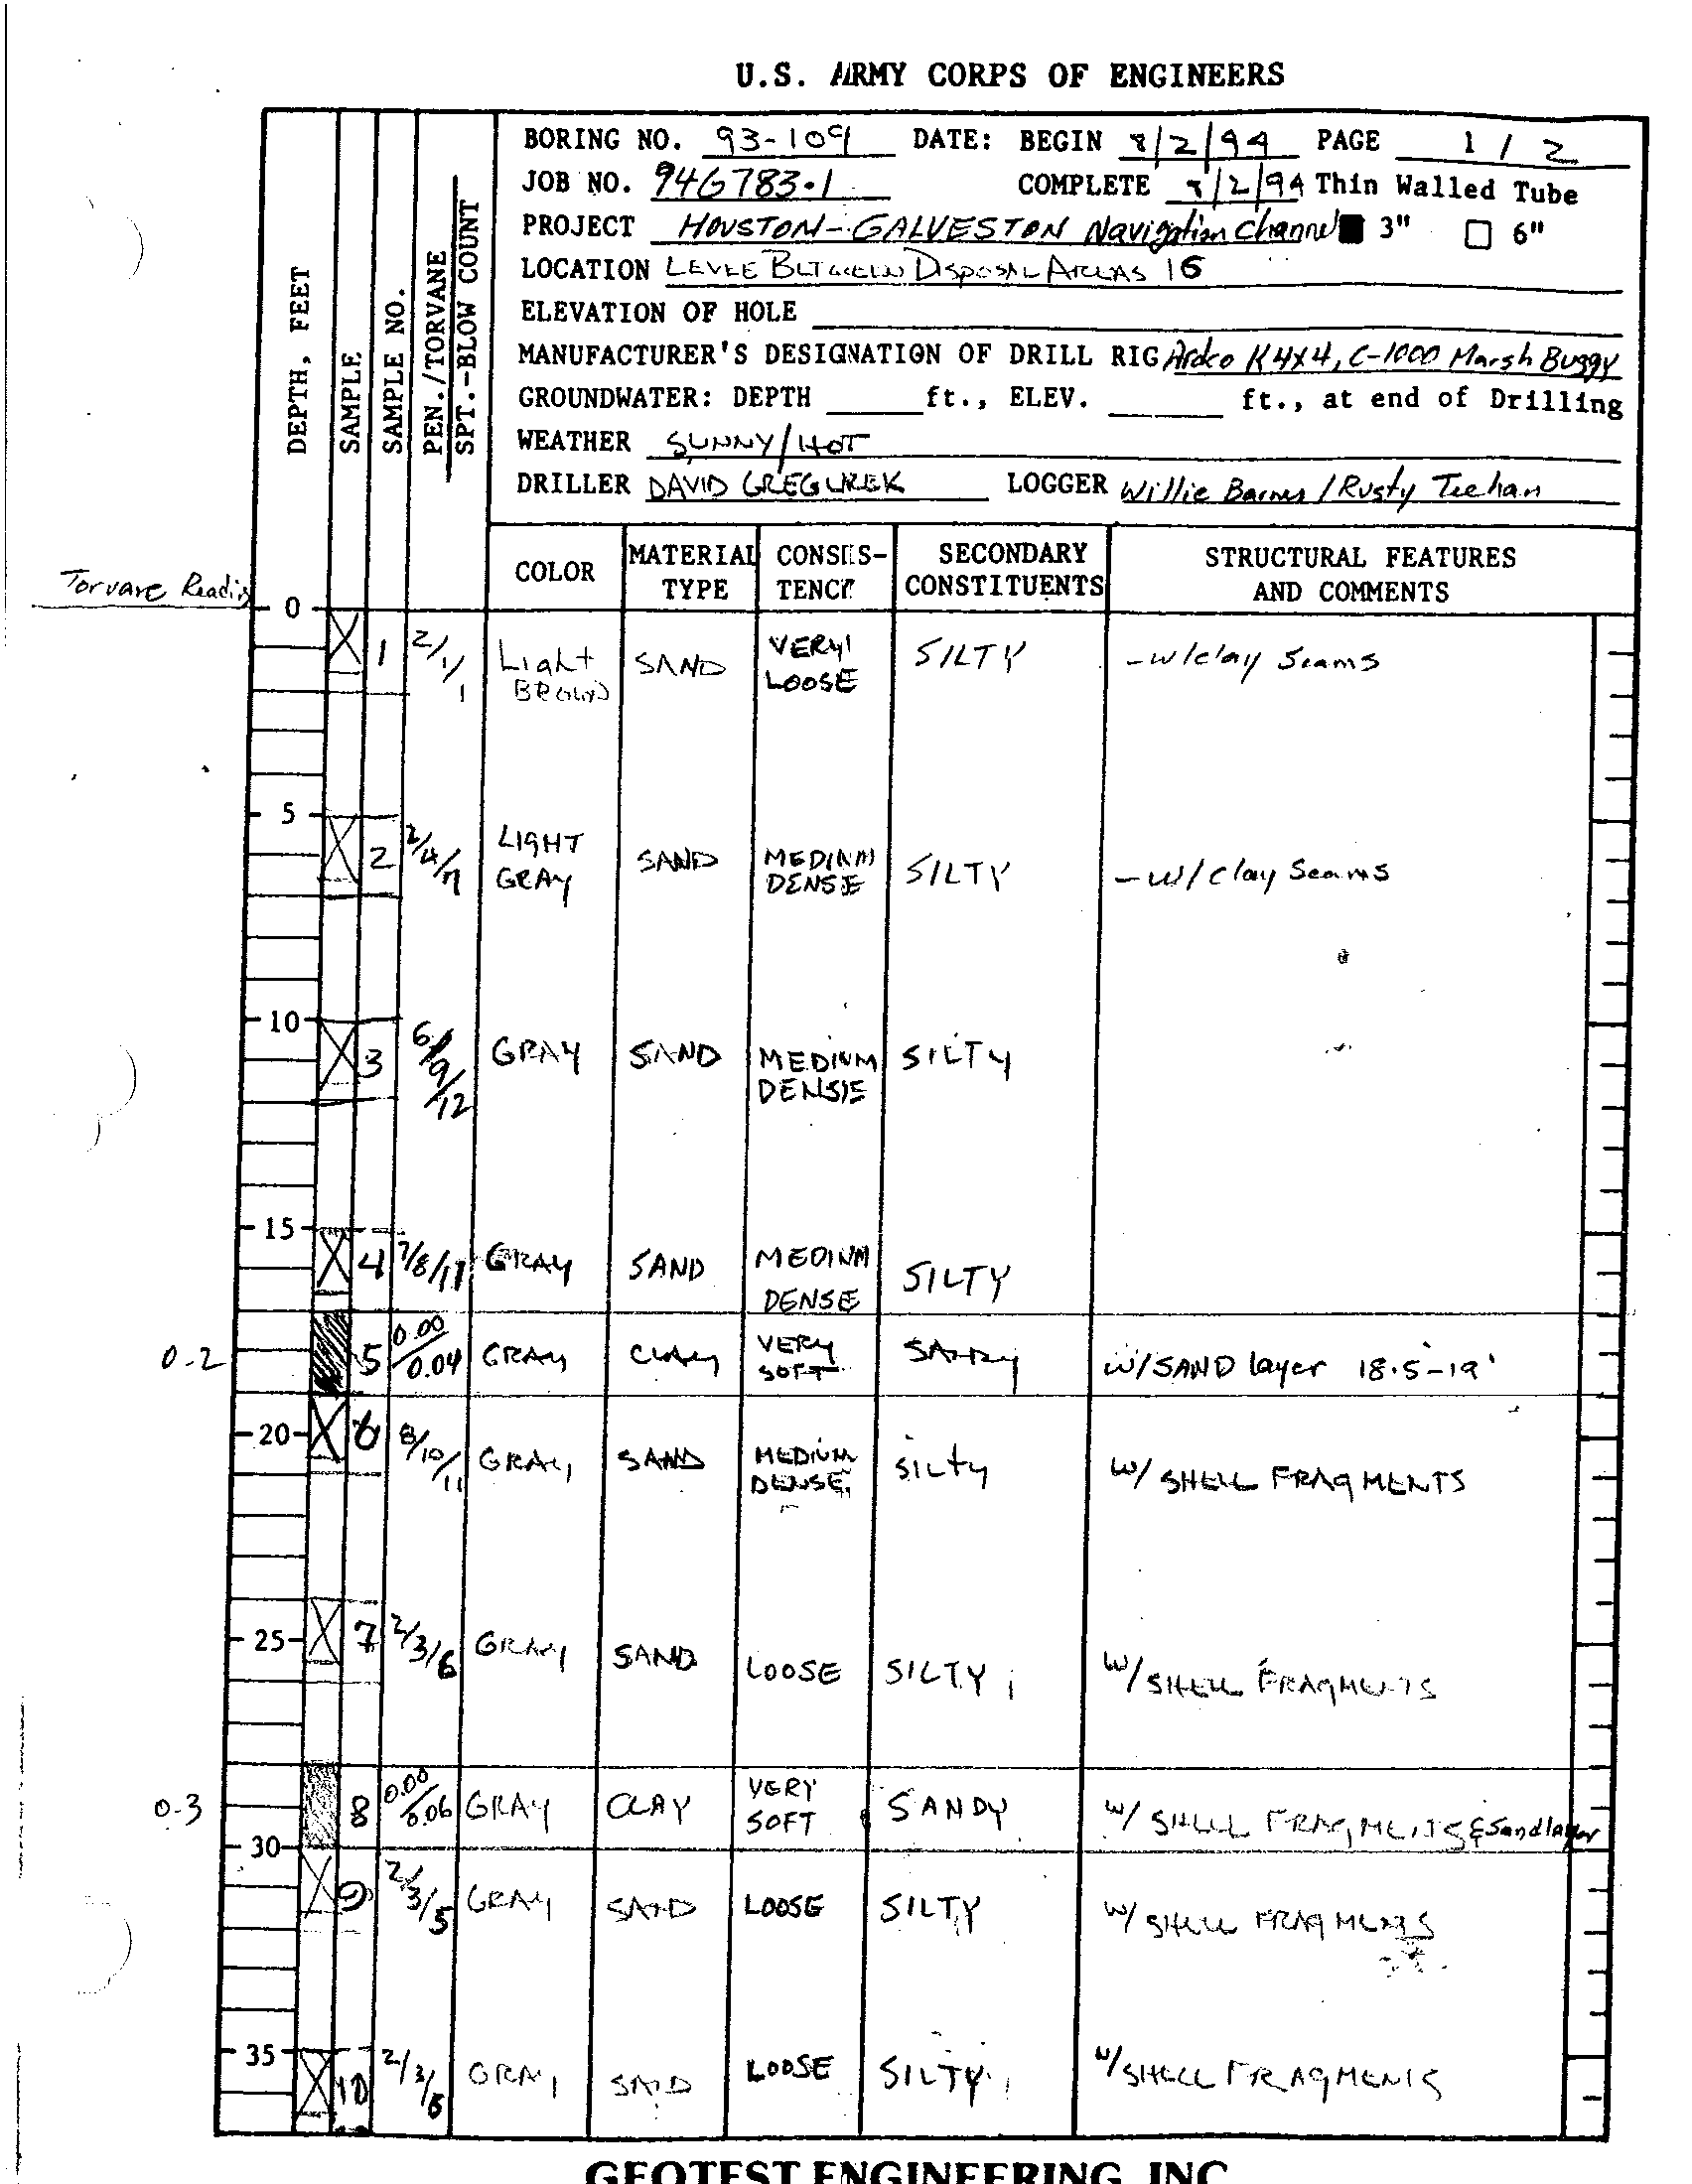 U.S. ARMY CORPS OF ENGINEERS
BORING NO. 93-109 DATE: BEGIN 8/2/94 PAGE 1 / 2
JOB NO. 94G783.1 COMPLETE 8/2/94 Thin Walled Tube
PROJECT HOUSTON-GALVESTON Navigation Channel 3" 6"
LOCATION LEVEE BETWEEN DISPOSAL AREAS 16
ELEVATION OF HOLE
MANUFACTURER'S DESIGNATION OF DRILL RIG Ardco K 4x4, C-1000 Marsh Buggy
GROUNDWATER: DEPTH ft., ELEV. ft., at end of Drilling
WEATHER SUNNY/HOT
DRILLER DAVID GREGUREK LOGGER Willie Barnes / Rusty Teehan
DEPTH, FEET
SAMPLE
SAMPLE NO.
PEN./TORVANE
SPT.-BLOW COUNT
COLOR MATERIAL TYPE CONSIS-TENCY SECONDARY CONSTITUENTS STRUCTURAL FEATURES AND COMMENTS
Torvane Reading
0
1 2/1/1 Light BROWN SAND VERY LOOSE SILTY -w/clay Seams
5
2 2/4/7 LIGHT GRAY SAND MEDIUM DENSE SILTY -w/clay Seams
10
3 6/9/12 GRAY SAND MEDIUM DENSE SILTY
15
4 7/8/11 GRAY SAND MEDIUM DENSE SILTY
0.2 5 0.00/0.04 GRAY CLAY VERY SOFT SANDY w/SAND layer 18.5-19'
20
6 8/10/11 GRAY SAND MEDIUM DENSE SILTY W/ SHELL FRAGMENTS
25
7 2/3/6 GRAY SAND LOOSE SILTY W/ SHELL FRAGMENTS
0.3 8 0.00/0.06 GRAY CLAY VERY SOFT SANDY W/ SHELL FRAGMENTS & Sand layer
30
9 2/3/5 GRAY SAND LOOSE SILTY W/ SHELL FRAGMENTS
35
10 2/3/6 GRAY SAND LOOSE SILTY W/ SHELL FRAGMENTS
GEOTEST ENGINEERING, INC.